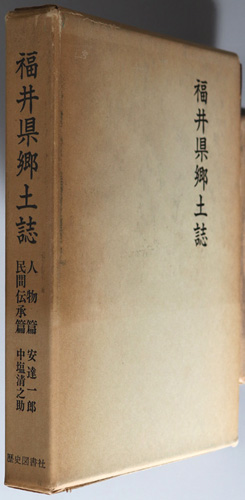 福井県郷土誌
人物篇 安達一郎
民間伝承篇 中塩清之助
歴史図書社
福井県郷土誌